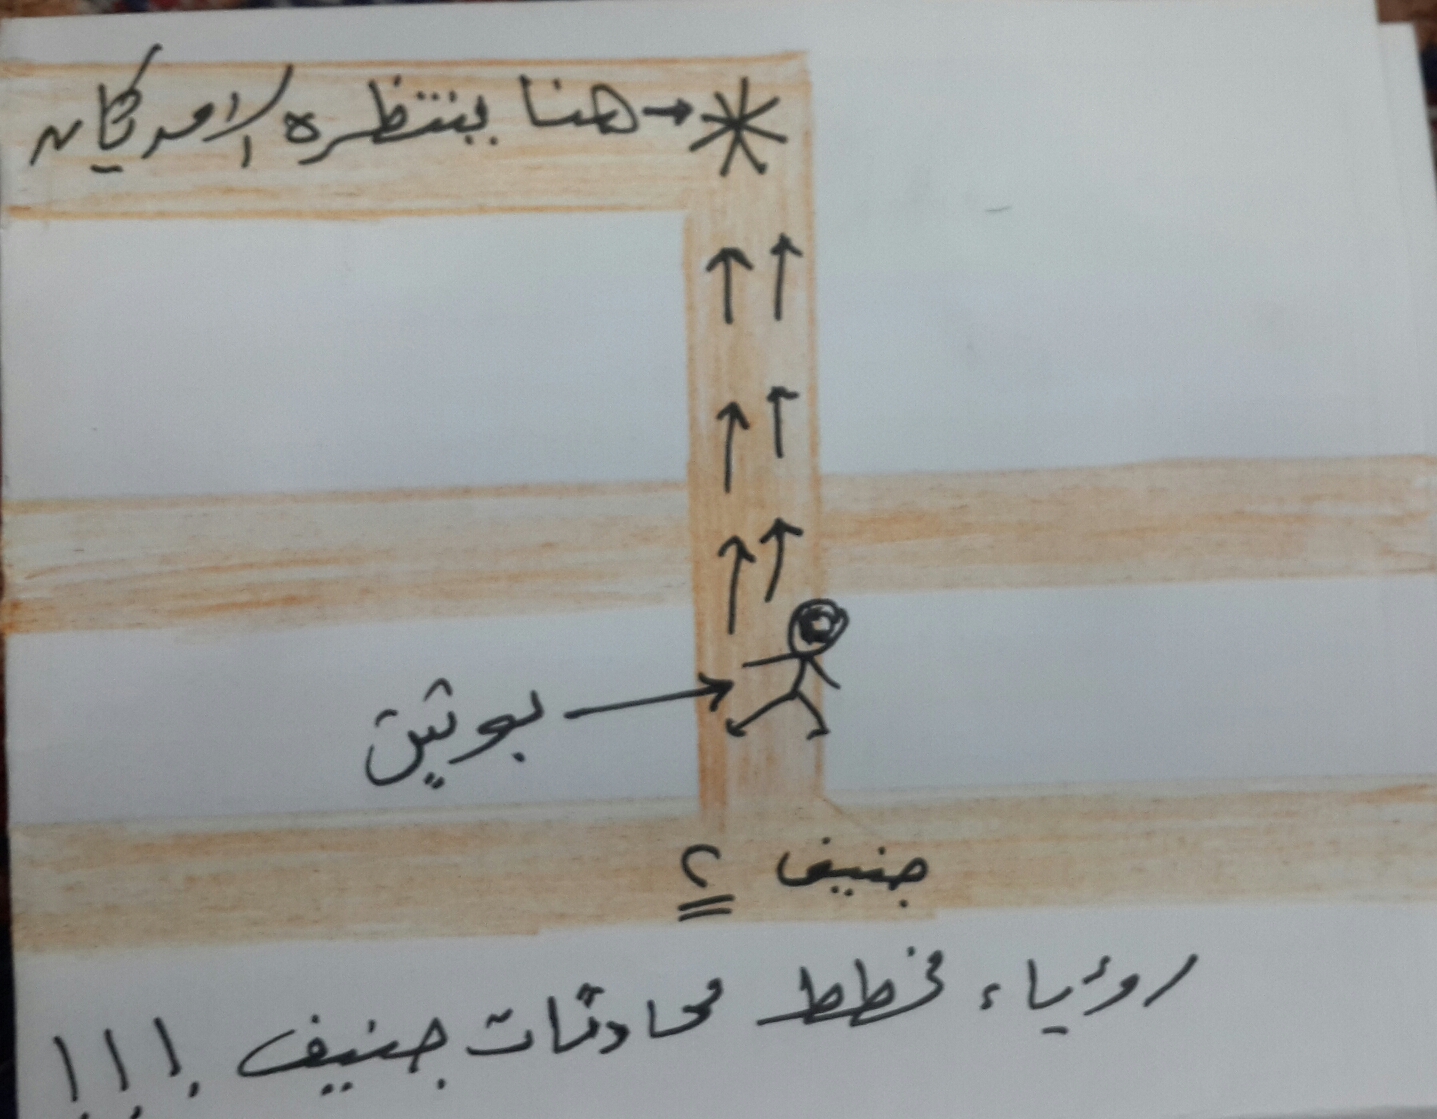 هنا ينتظره الامريكان
بوتين
جنيف ٢
رؤياء مخطط محادثات جنيف !!!